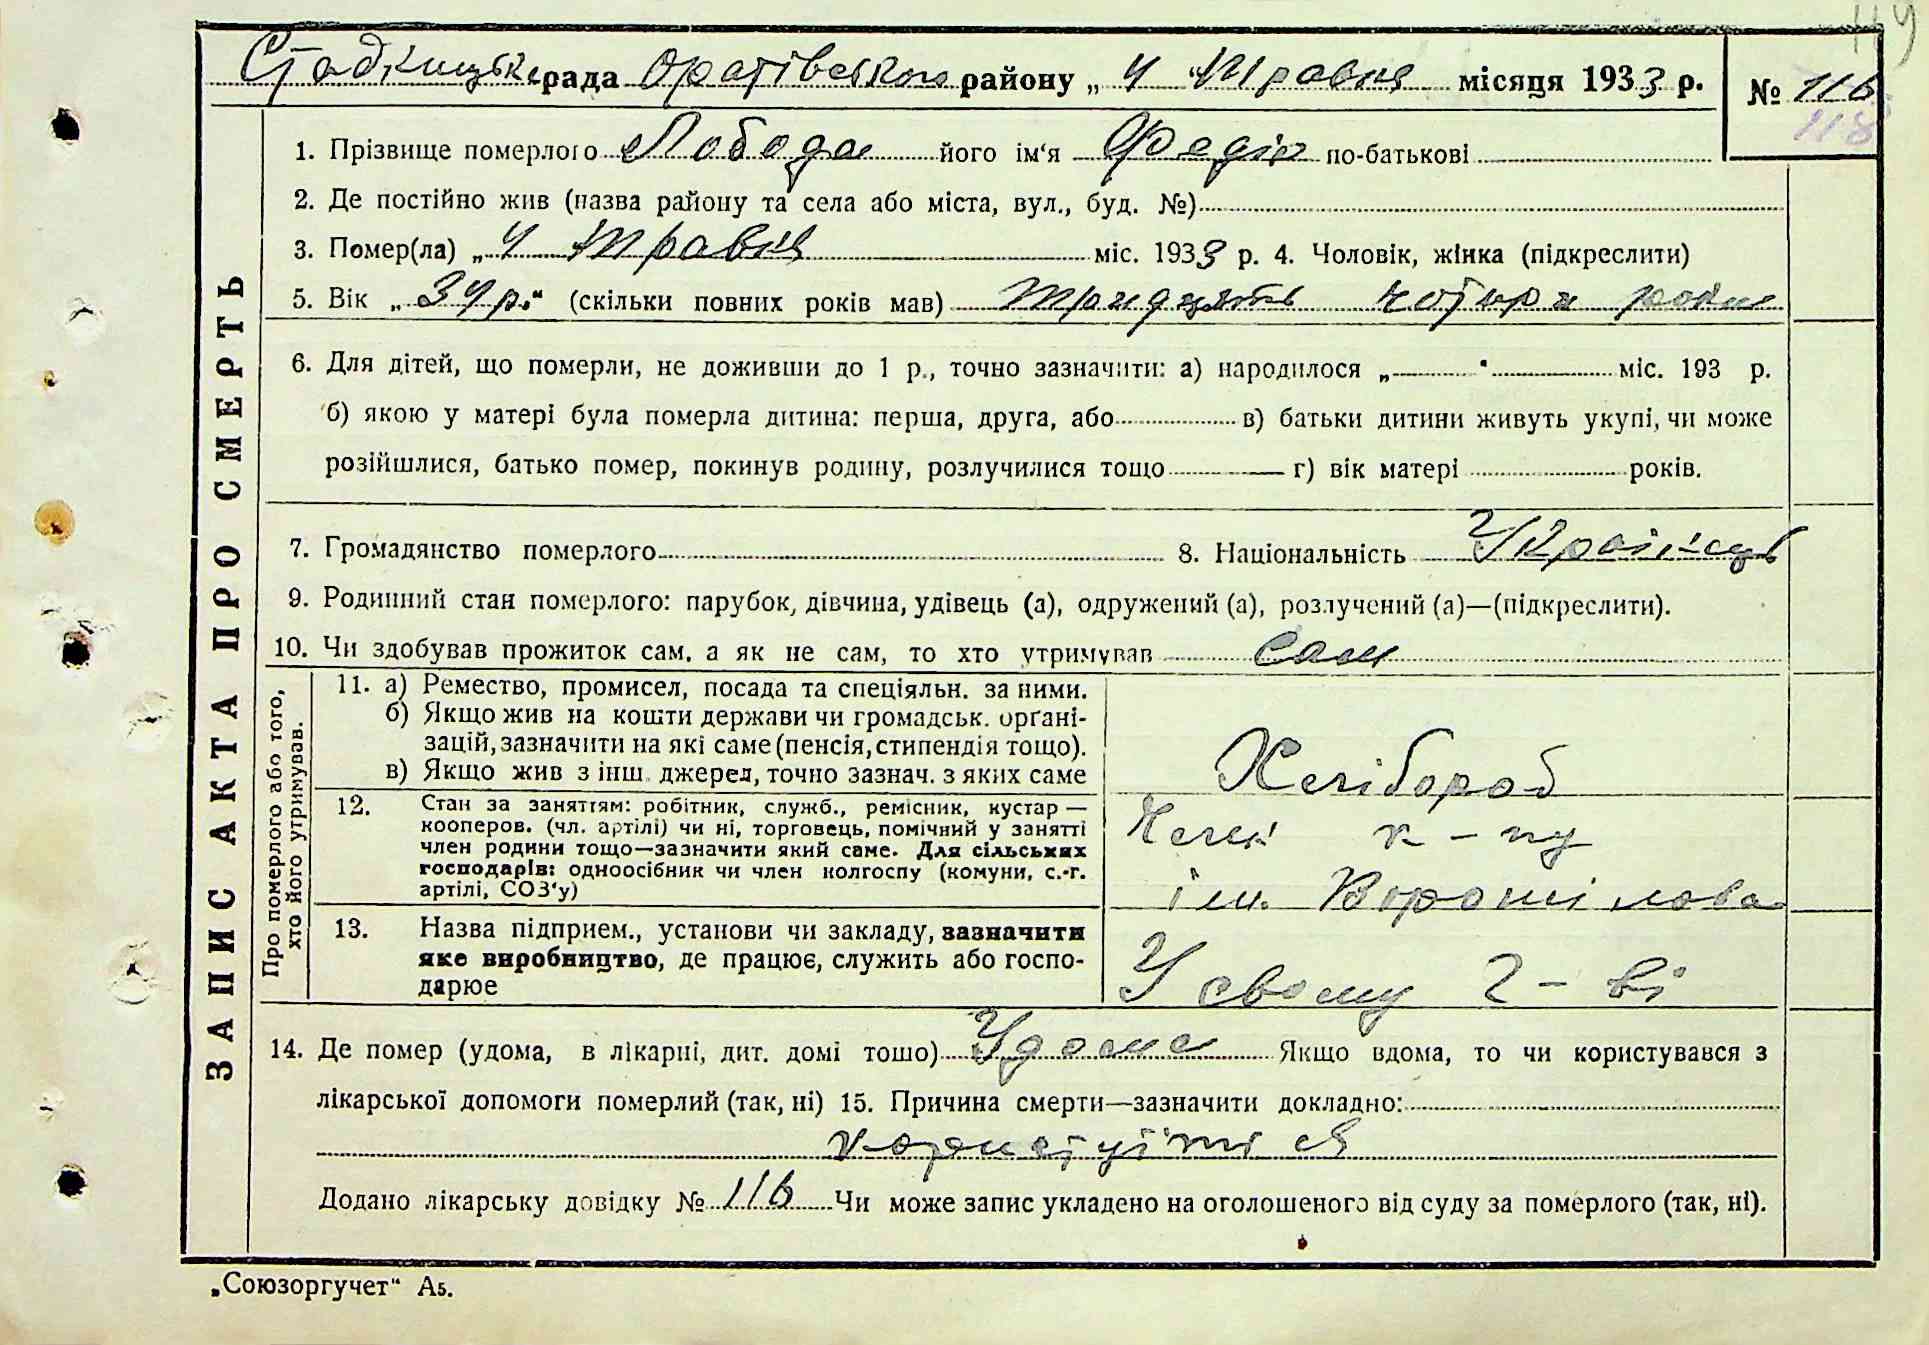 119
Стадницька рада Оратівського району „ 4 " Травня місяця 1933 р.
№ 116
118
1. Прізвище померлого Лобода його ім'я Федір по-батькові
2. Де постійно жив (назва району та села або міста, вул., буд. №)
3. Помер(ла) „ 4 Травня міс. 1933 р. 4. Чоловік, жінка (підкреслити)
5. Вік „ 34 р. " (скільки повних років мав) тридцять чотири роки
6. Для дітей, що померли, не доживши до 1 р., точно зазначити: а) народилося „ " міс. 193 р.
б) якою у матері була померла дитина: перша, друга, або в) батьки дитини живуть укупі, чи може
розійшлися, батько помер, покинув родину, розлучилися тощо г) вік матері років.
7. Громадянство померлого 8. Національність Українець
9. Родинний стан померлого: парубок, дівчина, удівець (а), одружений (а), розлучений (а)—(підкреслити).
10. Чи здобував прожиток сам, а як не сам, то хто утримував сам
Про померлого або того, хто його утримував.
11. а) Ремество, промисел, посада та спеціяльн. за ними.
б) Якщо жив на кошти держави чи громадськ. органі-
зацій, зазначити на які саме (пенсія, стипендія тощо).
в) Якщо жив з інш. джерел, точно зазнач. з яких саме
Хлібороб
12. Стан за заняттям: робітник, служб., ремісник, кустар —
кооперов. (чл. артілі) чи ні, торговець, помічний у занятті
член родини тощо—зазначити який саме. Для сільських
господарів: одноосібник чи член колгоспу (комуни, с.-г.
артілі, СОЗ'у)
Член к-пу
ім. Ворошилова
13. Назва підприєм., установи чи закладу, зазначити
яке виробництво, де працює, служить або госпо-
дарює
У свому г-ві
14. Де помер (удома, в лікарні, дит. домі тошо) Удома Якщо вдома, то чи користувався з
лікарської допомоги померлий (так, ні) 15. Причина смерти—зазначити докладно:
Додано лікарську довідку № 116 Чи може запис укладено на оголошеного від суду за померлого (так, ні).
ЗАПИС АКТА ПРО СМЕРТЬ
„Союзоргучет" А5.